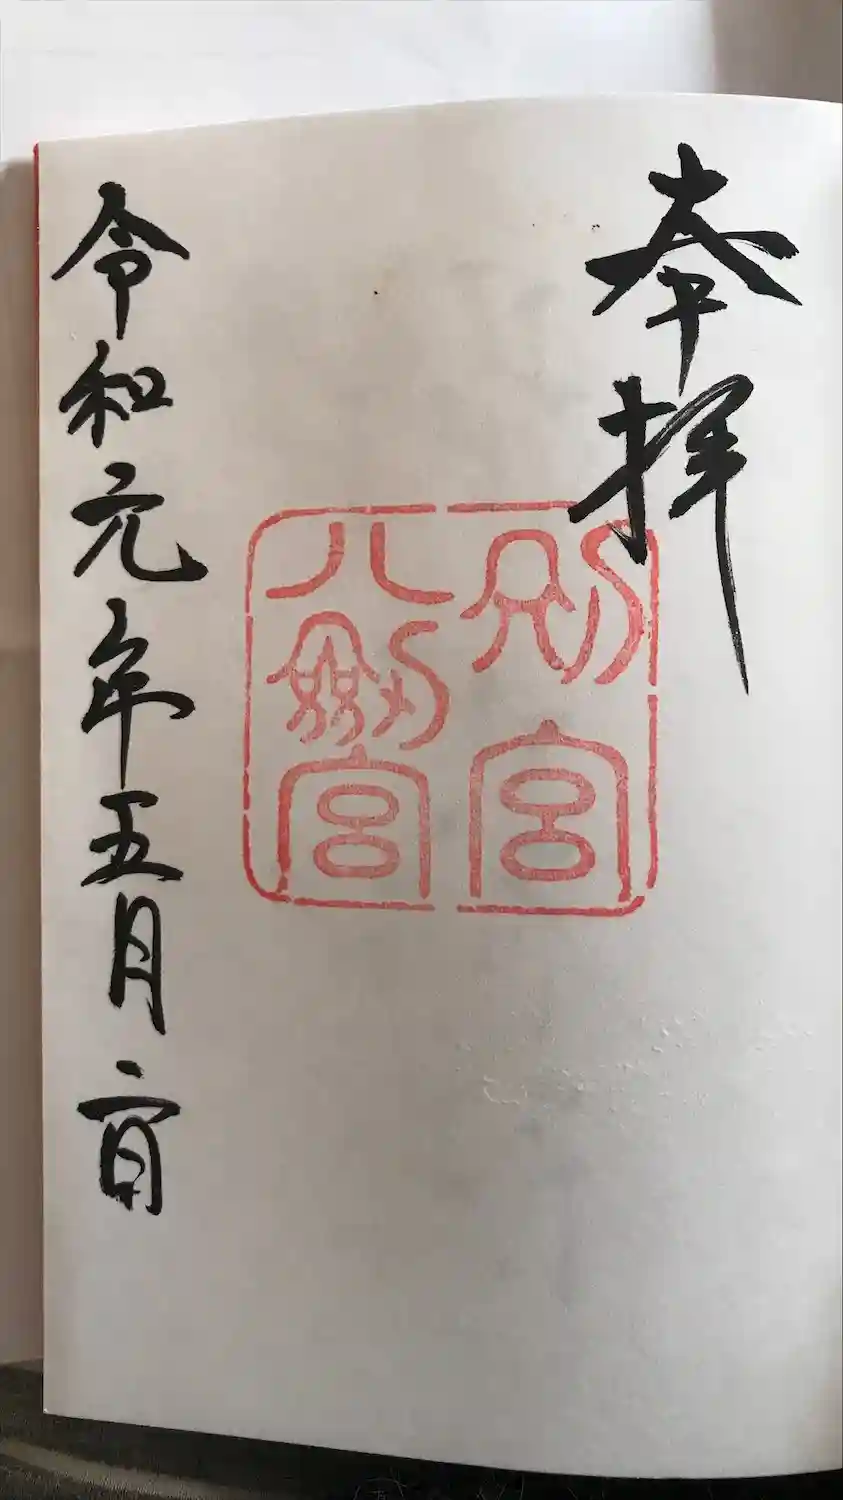 奉拝
別宮
八劔宮
令和元年五月二日